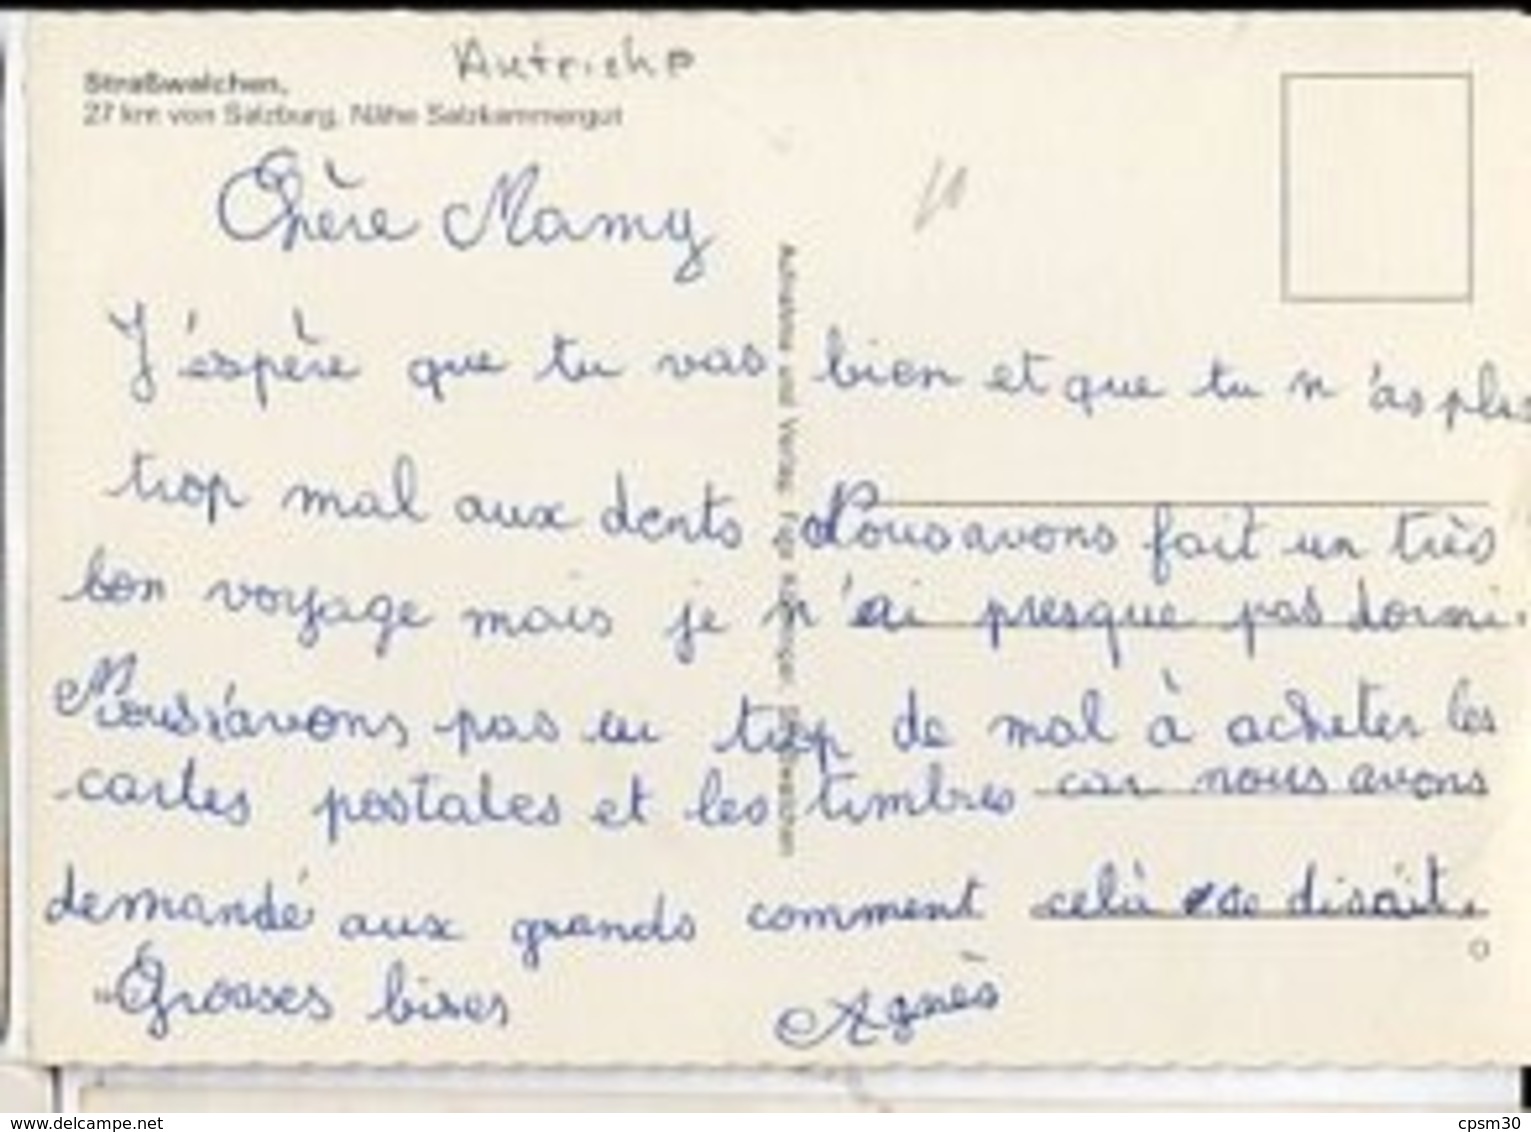 Autriche
Straßwalchen.
27 km von Salzburg, Nähe Salzkammergut
10
Chère Mamy
J'espère que tu vas bien et que tu n'as plus
trop mal aux dents Nous avons fait un très
bon voyage mais je n'ai presque pas dormi.
Nous n'avons pas eu trop de mal à acheter les
cartes postales et les timbres car nous avons
demandé aux grands comment celà se disait.
Grosses bises
Agnès
Aufnahme und Verlag: Straßwalchen
www.delcampe.net
cpsm30